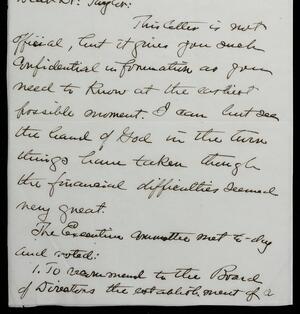 Dear Dr. Taylor:
This letter is not
official, but it gives you such
confidential information as you
need to know at the earliest
possible moment. I can but see
the hand of God in the turn
things have taken though
the financial difficulties seemed
very great.
The Executive Committee met to-day
and voted:
1. To recommend to the Board
of Directors the establishment of a